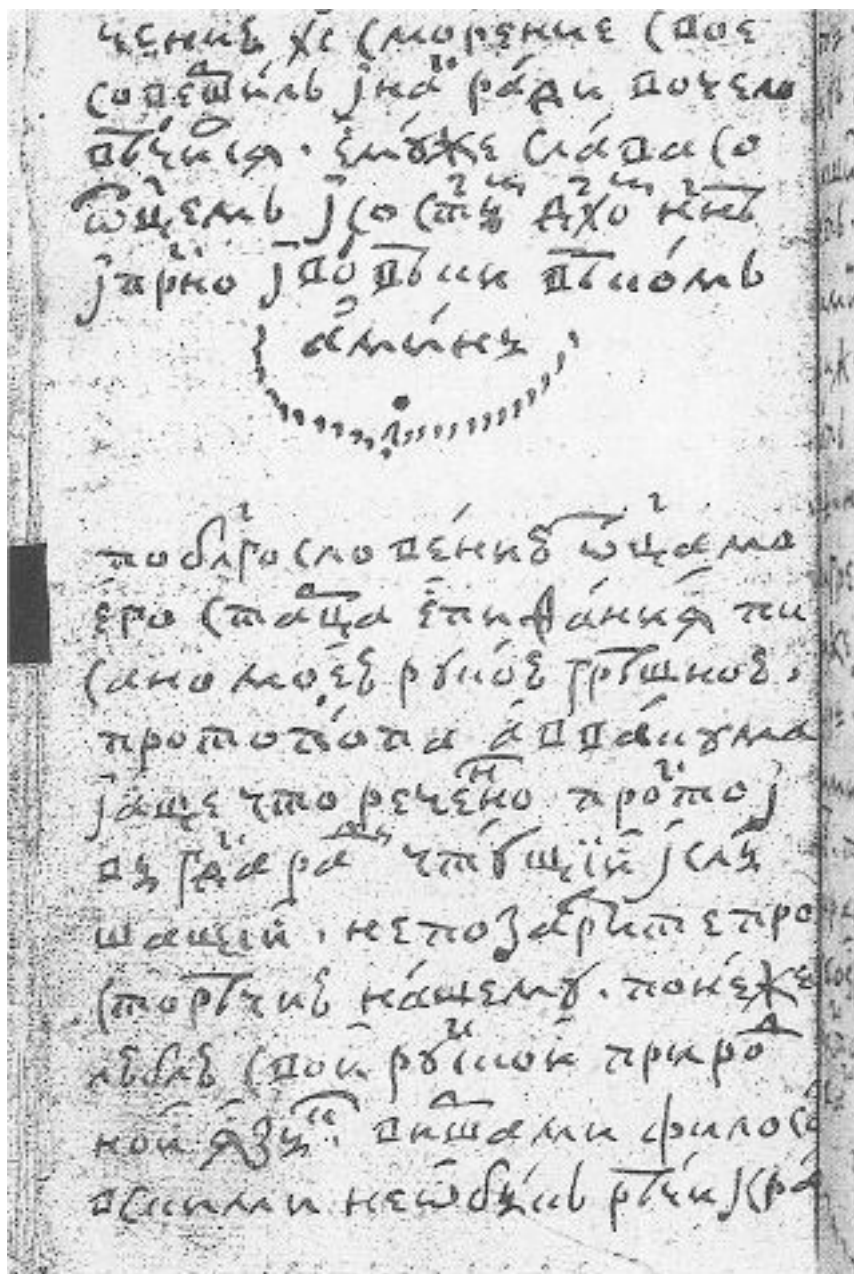 чениꙗ хс смотрение свое
совершилъ і на ради вочело
вѣчїꙗ. емуже слава со
ѿцемъ і со стꙑм дхом ннѣ
і прно і во вѣки вѣкомъ
аминь
по блгословению ѿца мо
его старца епифаниꙗ пи
сано моею рукою грѣшною
протопопа аввакума
і аще что речено просто і
вꙑ гда рад чтущїи і слꙑ
шащїи. не позазрите про
сторѣчию нашему. понеже
люблю свой руской приро
ной ꙗзꙑк. виршами филосо
вскими не ѡбꙑкъ рѣчи кра